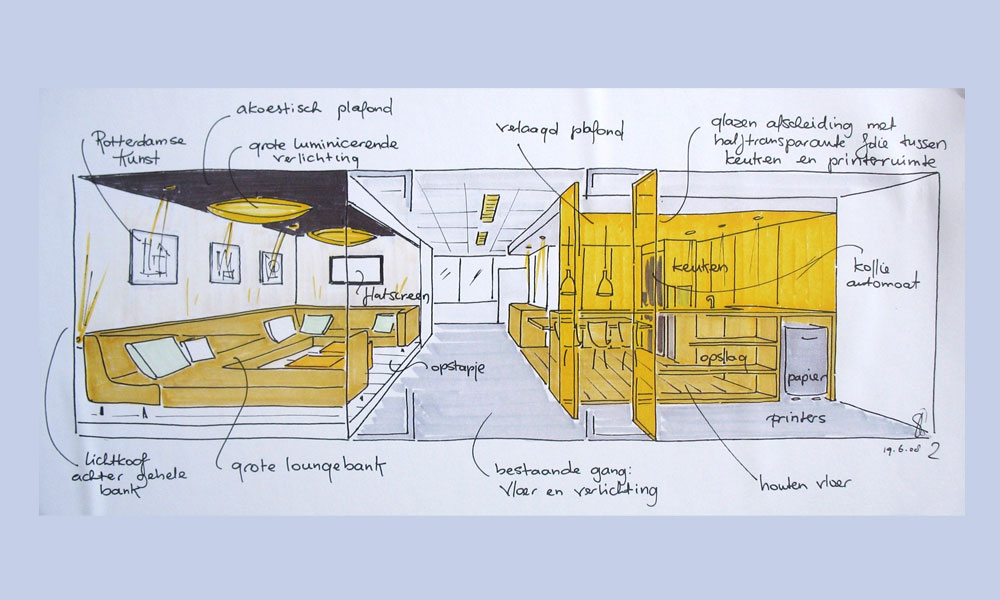 akoestisch plafond
Rotterdamse
Kunst
grote luminicerende
verlichting
verlaagd plafond
glazen afscheiding met
halftransparante folie tussen
keuken en printerruimte
keuken
koffie
automaat
flatscreen
opstapje
opslag
papier
printers
19.6.08 2
lichtkoof
achter gehele
bank
grote loungebank
bestaande gang:
vloer en verlichting
houten vloer